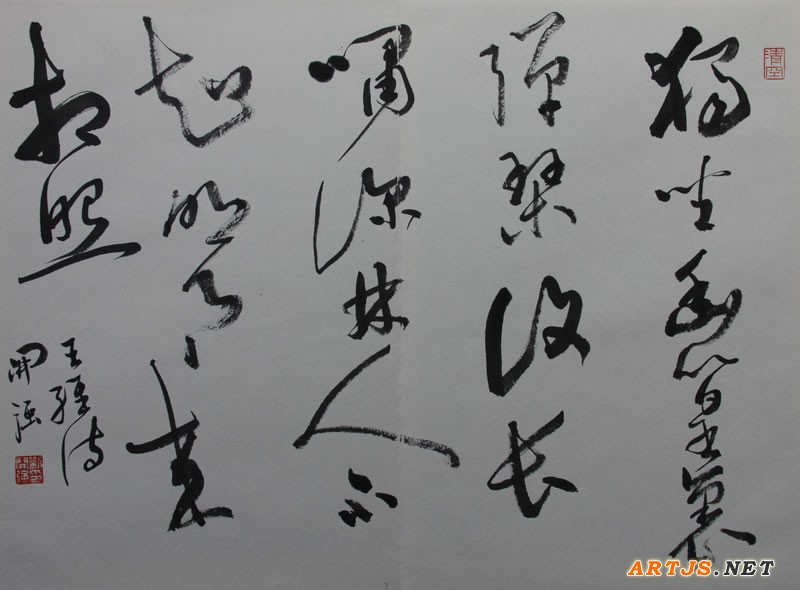 清空
獨坐幽篁裏
彈琴復长
嘯深林人不
知明月来
相照
王維诗
開强
ARTJS.NET